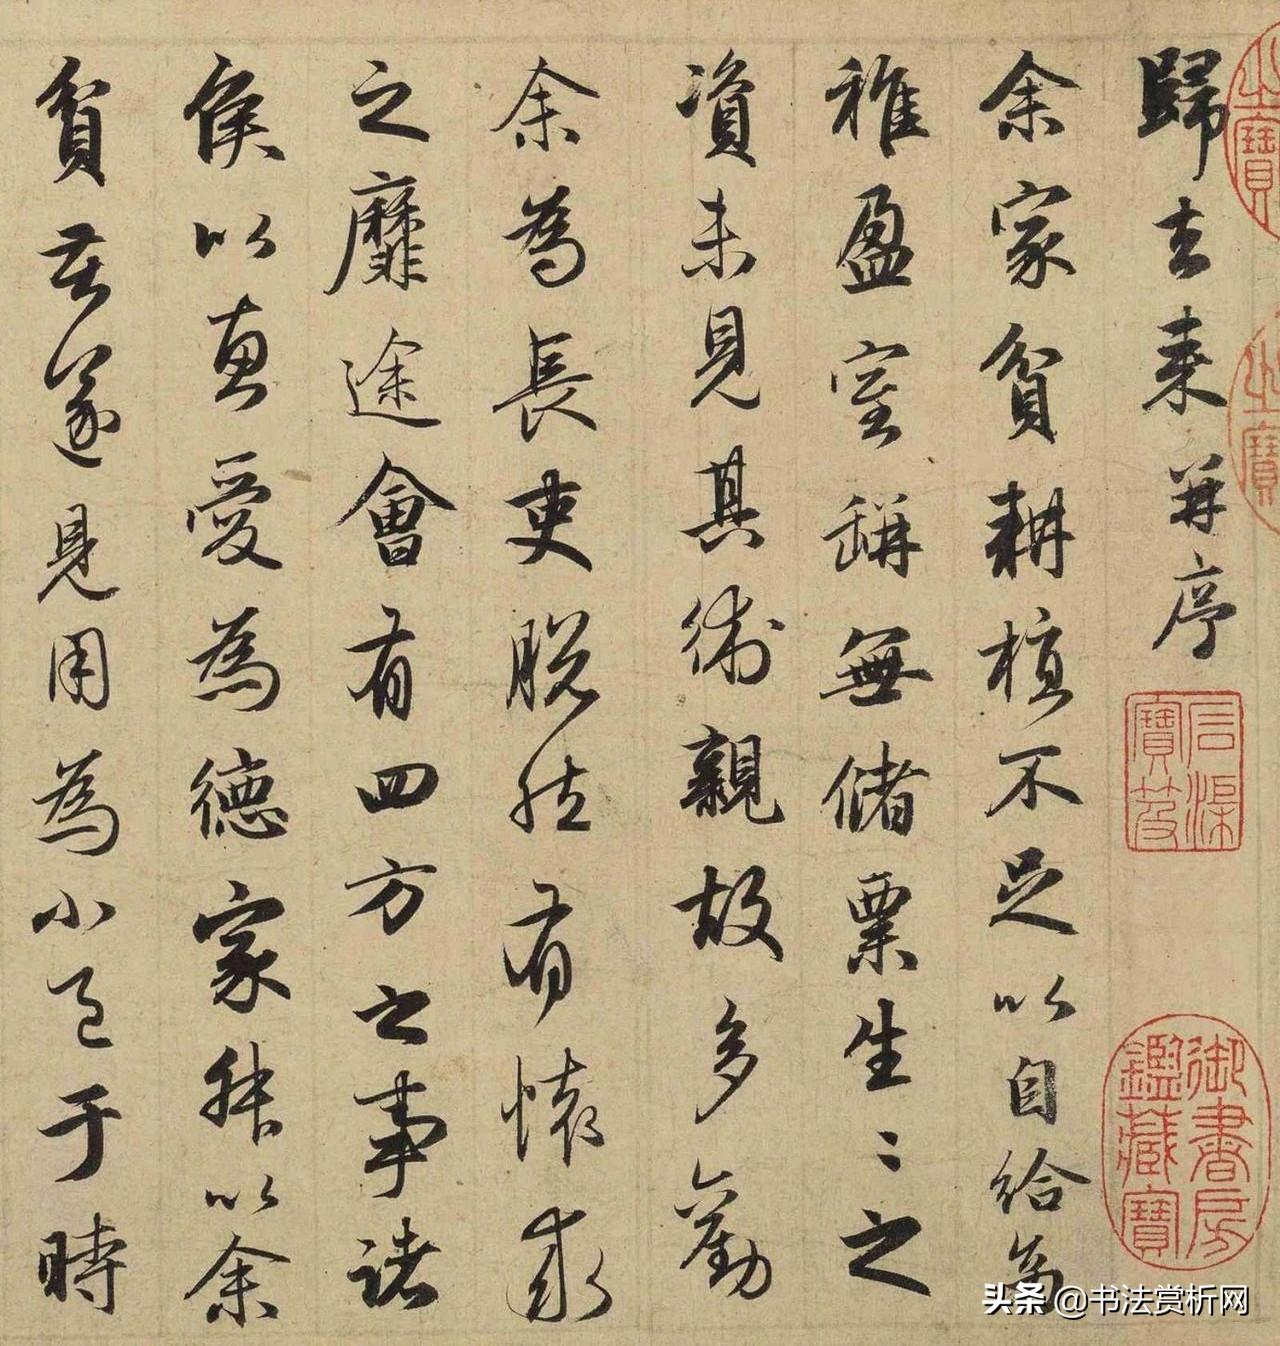 歸去来并序
余家貧耕植不足以自給幼
稚盈室缾無儲粟生〻之
資未見其術親故多勸
余為長吏脱然有懷求
之靡途會有四方之事諸
侯以惠愛為德家叔以余
貧苦遂見用為小邑于時
之寶
石渠寶笈
御書房鑑藏寶
头条 @书法赏析网